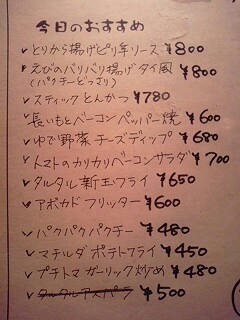 今日のおすすめ
✓とりから揚げピリ辛ソース ¥800
✓えびのパリパリ揚げタイ風 ¥800
(パクチーどっさり)
✓スティックとんかつ ¥780
✓長いもとベーコンペッパー焼 ¥600
✓ゆで野菜チーズディップ ¥680
✓トマトのカリカリベーコンサラダ ¥700
✓タルタル新玉フライ ¥650
✓アボカドフリッター ¥600
✓パクパクパクチー ¥480
✓マチルダポテトフライ ¥450
✓プチトマガーリック炒め ¥480
✓タルタルアスパラ ¥500